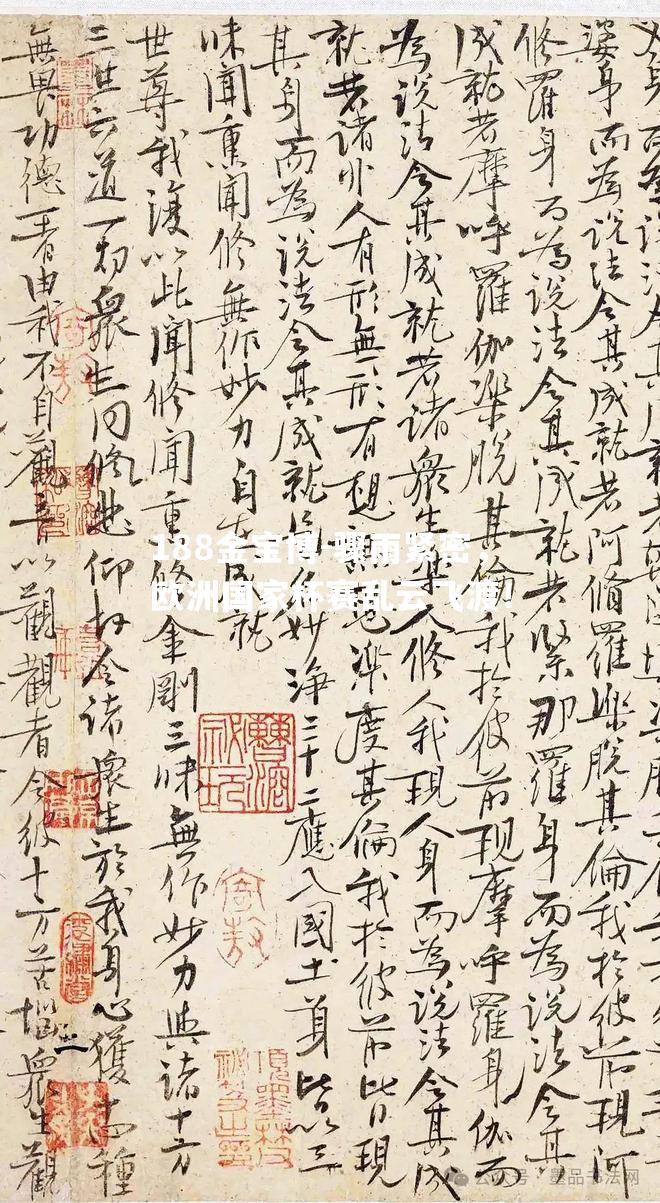 叉身而為說法令其成就若
婆身而為說法令其成就若阿脩羅樂脫其倫我於彼前現阿
修羅身而為說法令其成就若緊那羅身而為說法令其
成就若摩呼羅伽樂脫其倫我於彼前現摩呼羅身伽而
為說法令其成就若諸衆生樂人修人我現人身而為說法令其成
就若諸非人有形無形有想樂度其倫我於彼前皆現
其身而為說法令其成就是名妙淨三十二應入國土身皆以三
昧聞熏聞修無作妙力自在成就
世尊我復以此聞修聞熏修金剛三昧無作妙力與諸十方
三世六道一切衆生同修悲仰故令諸衆生於我身心獲十四種
無畏功德一者由我不自觀音以觀觀者令彼十方苦惱衆生觀
188金宝博·骤雨紧密，
欧洲国家杯赛乱云飞渡!
公众号 · 墨品书法网